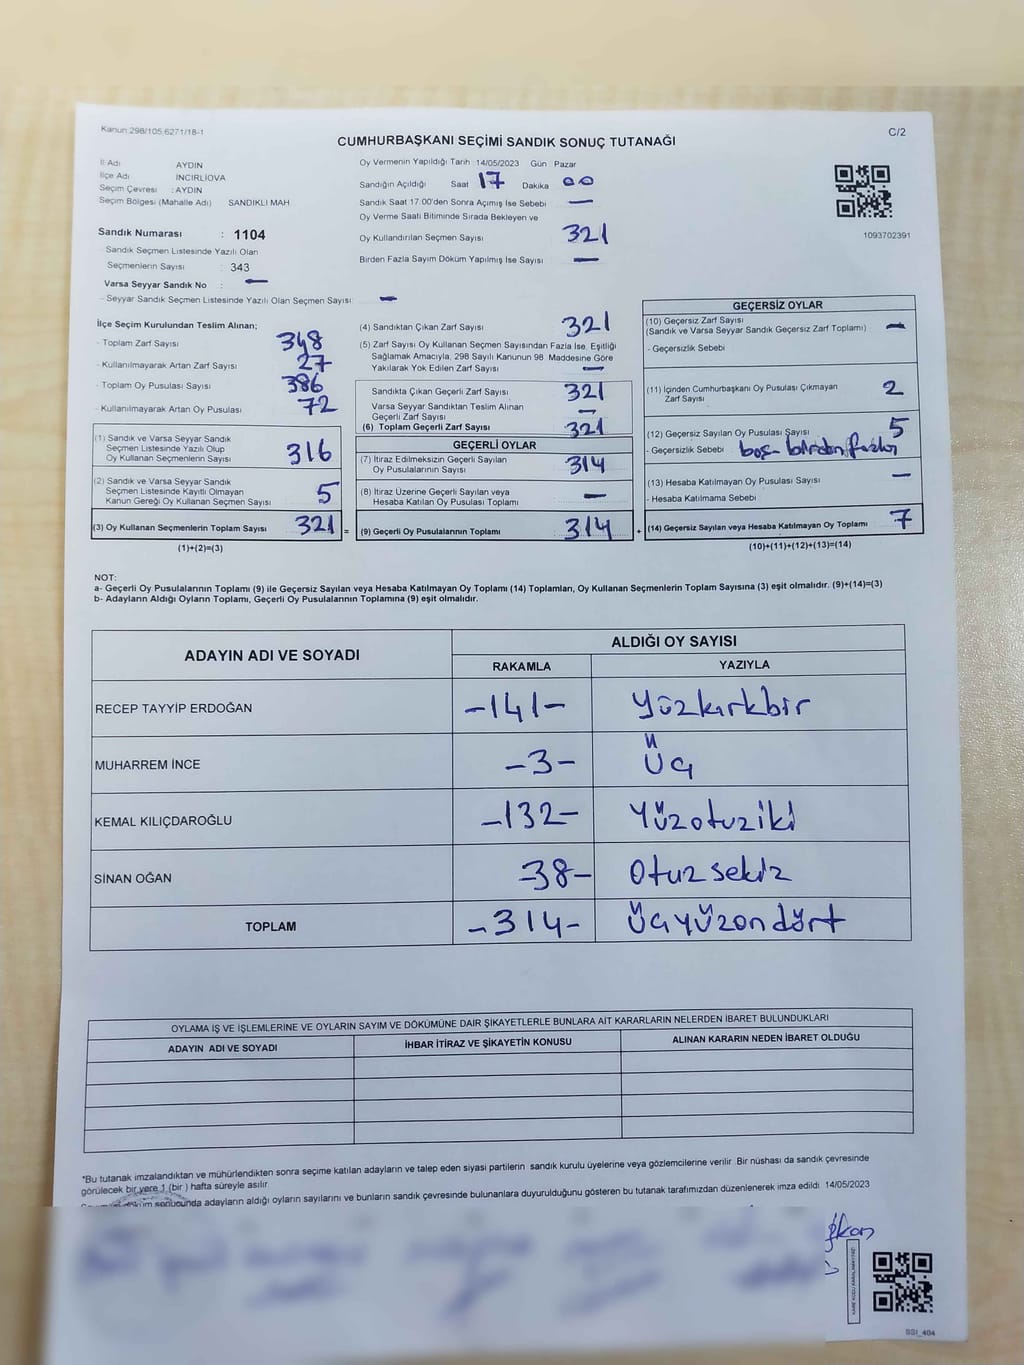 Kanun:298/105;6271/18-1
C/2
CUMHURBAŞKANI SEÇİMİ SANDIK SONUÇ TUTANAĞI
İl Adı AYDIN
İlçe Adı İNCİRLİOVA
Seçim Çevresi : AYDIN
Seçim Bölgesi (Mahalle Adı) SANDIKLI MAH
Sandık Numarası : 1104
Sandık Seçmen Listesinde Yazılı Olan
Seçmenlerin Sayısı : 343
Varsa Seyyar Sandık No : -
- Seyyar Sandık Seçmen Listesinde Yazılı Olan Seçmen Sayısı: -
Oy Vermenin Yapıldığı Tarih 14/05/2023 Gün Pazar
Sandığın Açıldığı Saat 17 Dakika 00
Sandık Saat 17:00'den Sonra Açımış İse Sebebi -
Oy Verme Saati Bitiminde Sırada Bekleyen ve
Oy Kullandırılan Seçmen Sayısı 321
Birden Fazla Sayım Döküm Yapılmış İse Sayısı -
1093702391
İlçe Seçim Kurulundan Teslim Alınan;
- Toplam Zarf Sayısı 348
- Kullanılmayarak Artan Zarf Sayısı 27
- Toplam Oy Pusulası Sayısı 386
- Kullanılmayarak Artan Oy Pusulası 72
(1) Sandık ve Varsa Seyyar Sandık
Seçmen Listesinde Yazılı Olup
Oy Kullanan Seçmenlerin Sayısı 316
(2) Sandık ve Varsa Seyyar Sandık
Seçmen Listesinde Kayıtlı Olmayan
Kanun Gereği Oy Kullanan Seçmen Sayısı 5
(3) Oy Kullanan Seçmenlerin Toplam Sayısı 321 =
(1)+(2)=(3)
(4) Sandıktan Çıkan Zarf Sayısı 321
(5) Zarf Sayısı Oy Kullanan Seçmen Sayısından Fazla İse, Eşitliği
Sağlamak Amacıyla, 298 Sayılı Kanunun 98. Maddesine Göre
Yakılarak Yok Edilen Zarf Sayısı -
Sandıkta Çıkan Geçerli Zarf Sayısı 321
Varsa Seyyar Sandıktan Teslim Alınan
Geçerli Zarf Sayısı -
(6) Toplam Geçerli Zarf Sayısı 321
GEÇERLİ OYLAR
(7) İtiraz Edilmeksizin Geçerli Sayılan
Oy Pusulalarının Sayısı 314
(8) İtiraz Üzerine Geçerli Sayılan veya
Hesaba Katılan Oy Pusulası Sayısı -
(9) Geçerli Oy Pusulalarının Toplamı 314 +
GEÇERSİZ OYLAR
(10) Geçersiz Zarf Sayısı
(Sandık ve Varsa Seyyar Sandık Geçersiz Zarf Toplamı) -
- Geçersizlik Sebebi
(11) İçinden Cumhurbaşkanı Oy Pusulası Çıkmayan
Zarf Sayısı 2
(12) Geçersiz Sayılan Oy Pusulası Sayısı 5
- Geçersizlik Sebebi boş - birden fazla
(13) Hesaba Katılmayan Oy Pusulası Sayısı -
- Hesaba Katılmama Sebebi
(14) Geçersiz Sayılan veya Hesaba Katılmayan Oy Toplamı 7
(10)+(11)+(12)+(13)=(14)
NOT:
a- Geçerli Oy Pusulalarının Toplamı (9) ile Geçersiz Sayılan veya Hesaba Katılmayan Oy Toplamı (14) Toplamları, Oy Kullanan Seçmenlerin Toplam Sayısına (3) eşit olmalıdır. (9)+(14)=(3)
b- Adayların Aldığı Oyların Toplamı, Geçerli Oy Pusulalarının Toplamına (9) eşit olmalıdır.
ADAYIN ADI VE SOYADI ALDIĞI OY SAYISI
RAKAMLA YAZIYLA
RECEP TAYYİP ERDOĞAN -141- Yüzkırkbir
MUHARREM İNCE -3- Üç
KEMAL KILIÇDAROĞLU -132- Yüzotuziki
SİNAN OĞAN -38- Otuzsekiz
TOPLAM -314- Üçyüzondört
OYLAMA İŞ VE İŞLEMLERİNE VE OYLARIN SAYIM VE DÖKÜMÜNE DAİR ŞİKAYETLERLE BUNLARA AİT KARARLARIN NELERDEN İBARET BULUNDUKLARI
ADAYIN ADI VE SOYADI İHBAR İTİRAZ VE ŞİKAYETİN KONUSU ALINAN KARARIN NEDEN İBARET OLDUĞU
*Bu tutanak imzalandıktan ve mühürlendikten sonra seçime katılan adayların ve talep eden siyasi partilerin sandık kurulu üyelerine veya gözlemcilerine verilir. Bir nüshası da sandık çevresinde
görülecek bir yere 1 (bir) hafta süreyle asılır.
sonucunda adayların aldığı oyların sayılarını ve bunların sandık çevresinde bulunanlara duyurulduğunu gösteren bu tutanak tarafımızdan düzenlenerek imza edildi. 14/05/2023
SSI_404